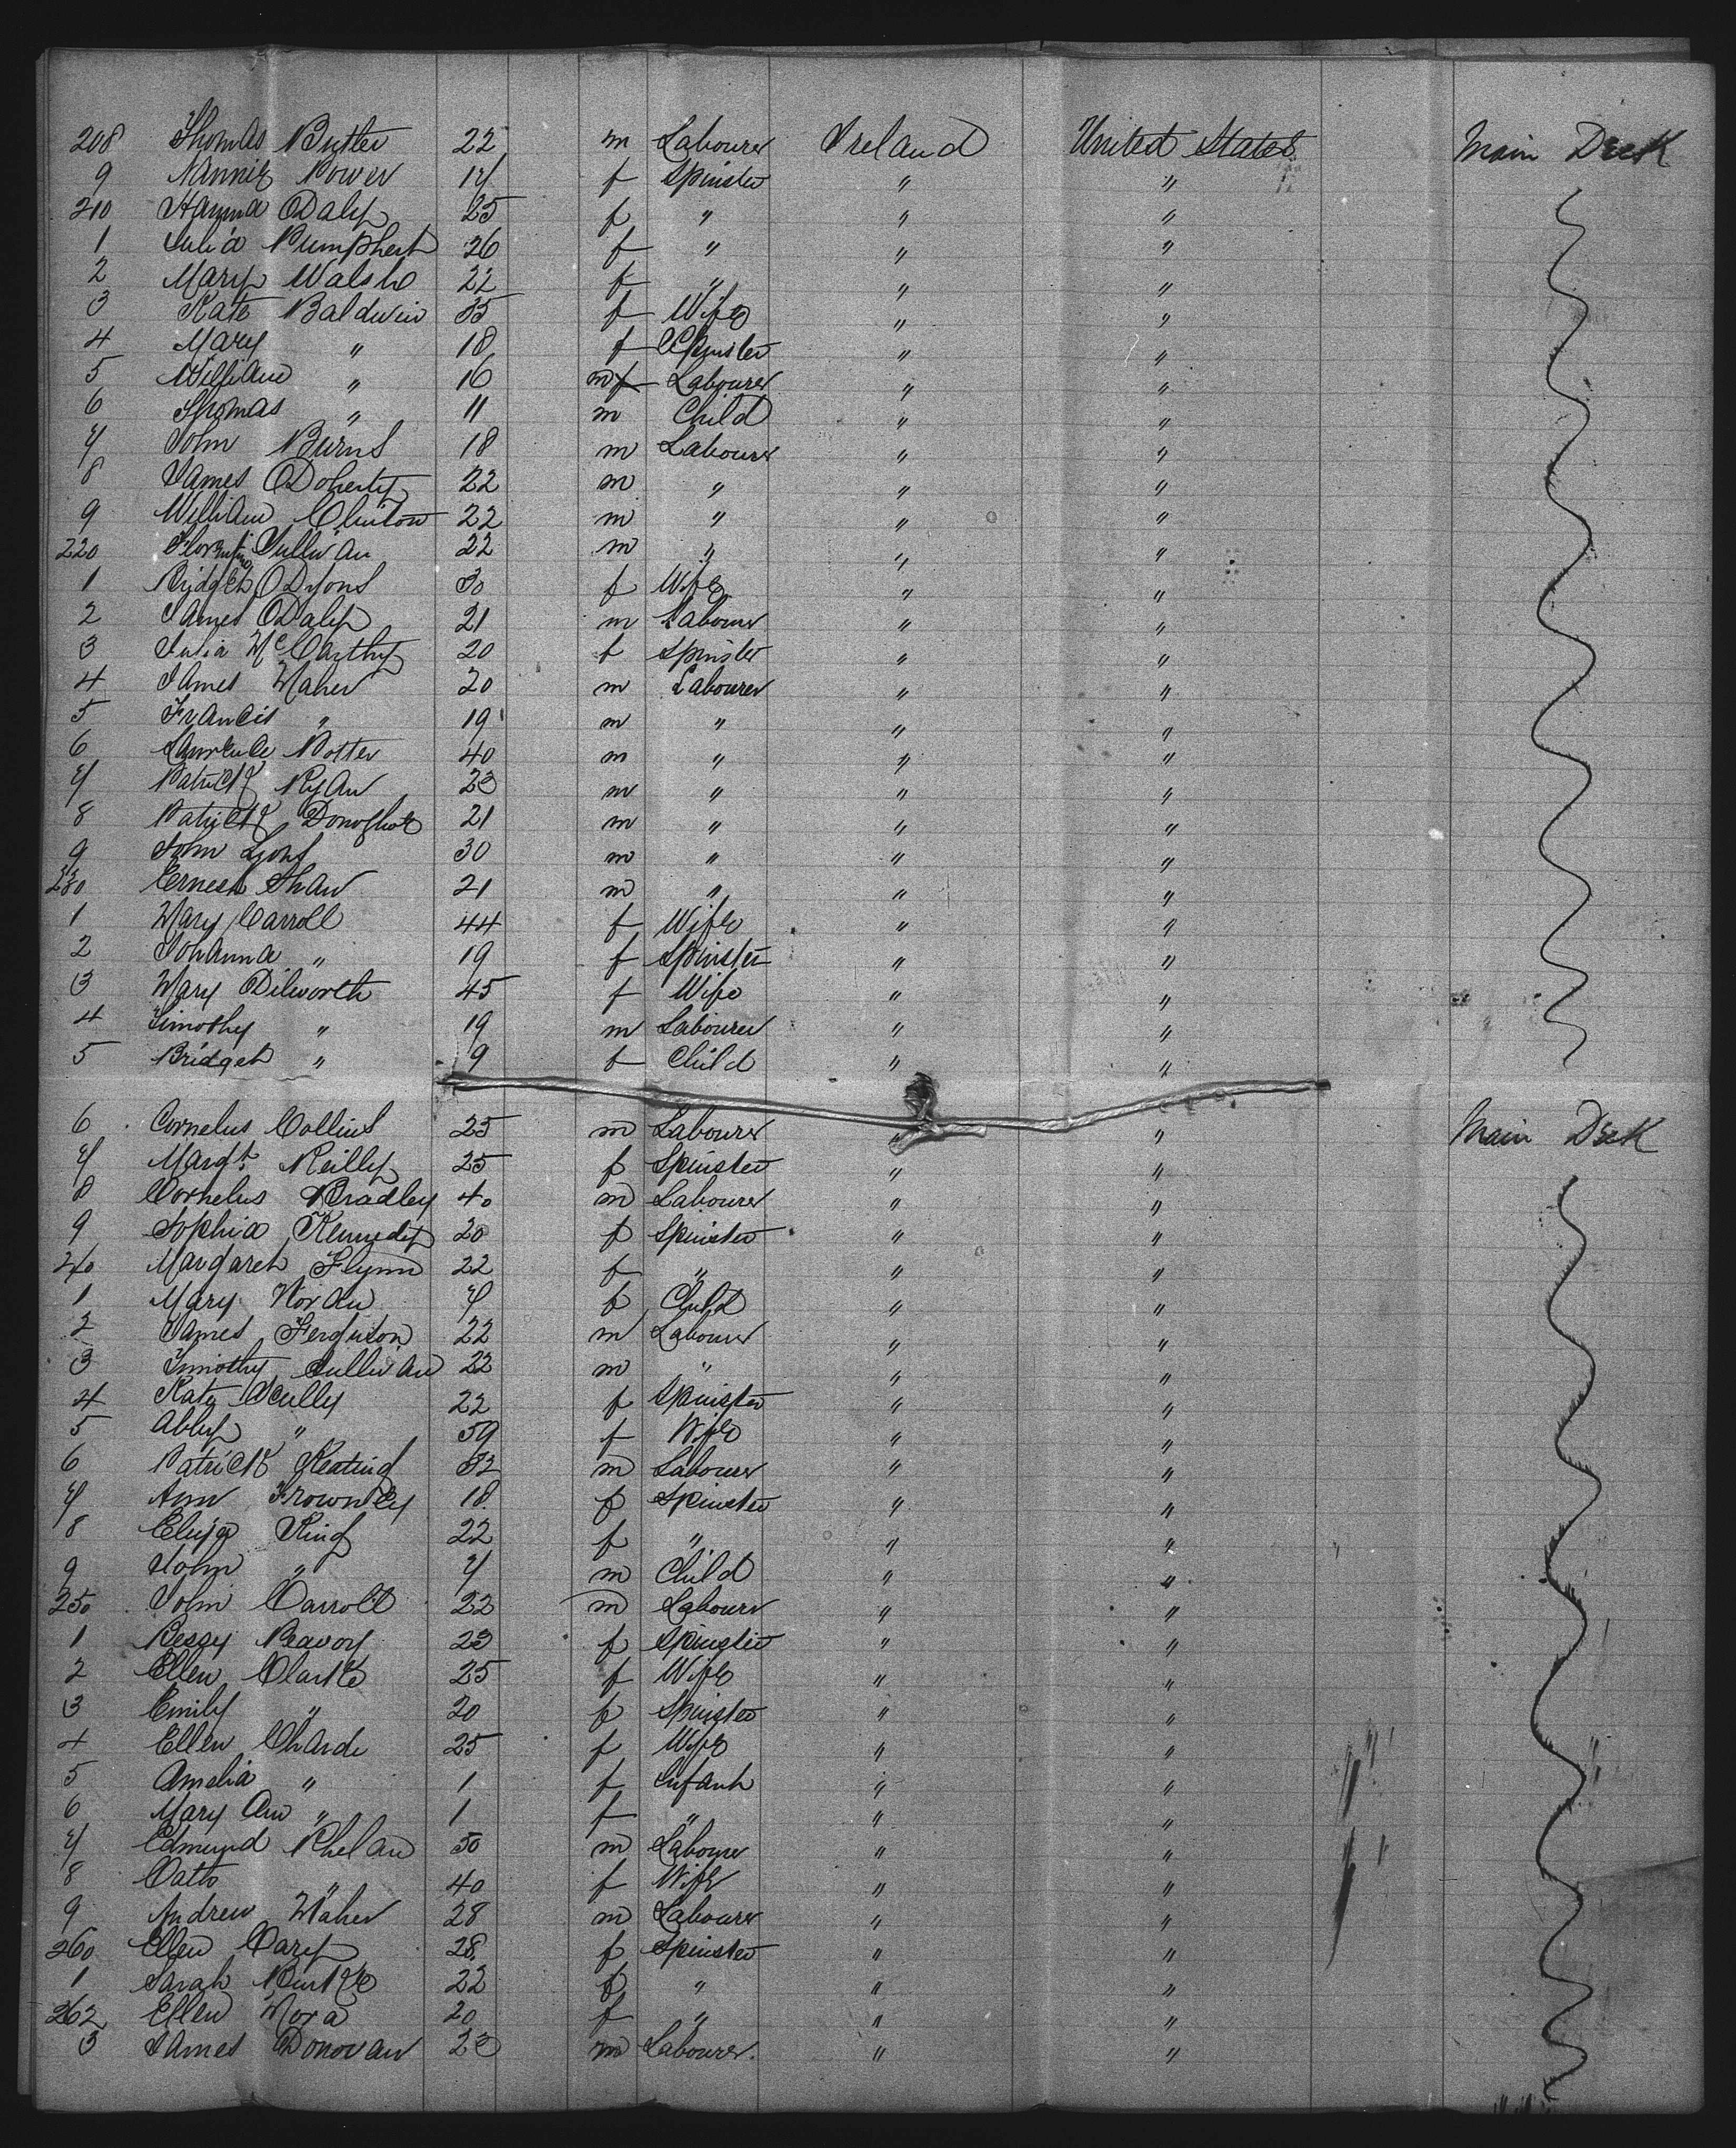 208 Thomas Butler 22 m Labourer Ireland United States Main Deck
9 Nannie Power 17 f Spinster " "
210 Hanna O Daly 25 f " " "
1 Julia 26 f " " "
2 Mary Walsh 22 f " " "
3 Kate Baldwin 35 f Wife " "
4 Mary " 18 f Spinster " "
5 William " 16 m Labourer " "
6 Thomas " 11 m Child " "
7 John Burns 18 m Labourer " "
8 James O Doherty 22 m " " "
9 William Clinton 22 m " " "
220 Sullivan 22 m " " "
1 Bridget 30 f Wife " "
2 James O Daly 21 m Labourer " "
3 Julia McCarthy 20 f Spinster " "
4 James Maher 20 m Labourer " "
5 Francis " 19 m " " "
6 Laurence Potter 40 m " " "
7 Patrick Ryan 23 m " " "
8 Patrick Donoghoe 21 m " " "
9 John Lyons 30 m " " "
230 Ernest Shaw 21 m " " "
1 Mary Carroll 44 f Wife " "
2 Johanna " 19 f Spinster " "
3 Mary Dilworth 45 f Wife " "
4 Timothy " 19 m Labourer " "
5 Bridget " 9 f Child " "
6 Cornelus Collins 25 m Labourer " " Main Deck
7 Margt. Reilly 25 f Spinster " "
8 Cornelus Bradley 40 m Labourer " "
9 Sophia Kennedy 20 f Spinster " "
240 Margaret Flynn 22 f " " "
1 Mary Horan 7 f Child " "
2 James Ferguson 22 m Labourer " "
3 Timothy Sullivan 22 m " " "
4 Kate Scully 22 f Spinster " "
5 Abby " 59 f Wife " "
6 Patrick Keating 32 m Labourer " "
7 Ann 18 f Spinster " "
8 Eliza King 22 f " " "
9 John " 7 m Child " "
250 John Carroll 22 m Labourer " "
1 Bessy 23 f Spinster " "
2 Ellen Clarke 25 f Wife " "
3 Emily " 20 f Spinster " "
4 Ellen Charde 25 f Wife " "
5 Amelia " 1 f Infant " "
6 Mary Ann " 1 f " " "
7 Edmund Phelan 50 m Labourer " "
8 " 40 f Wife " "
9 Andrew Maher 28 m Labourer " "
260 Ellen Cary 28 f Spinster " "
1 Sarah Burke 22 f " " "
262 Ellen Mora 20 f " " "
3 James Donovan 23 m Labourer " "